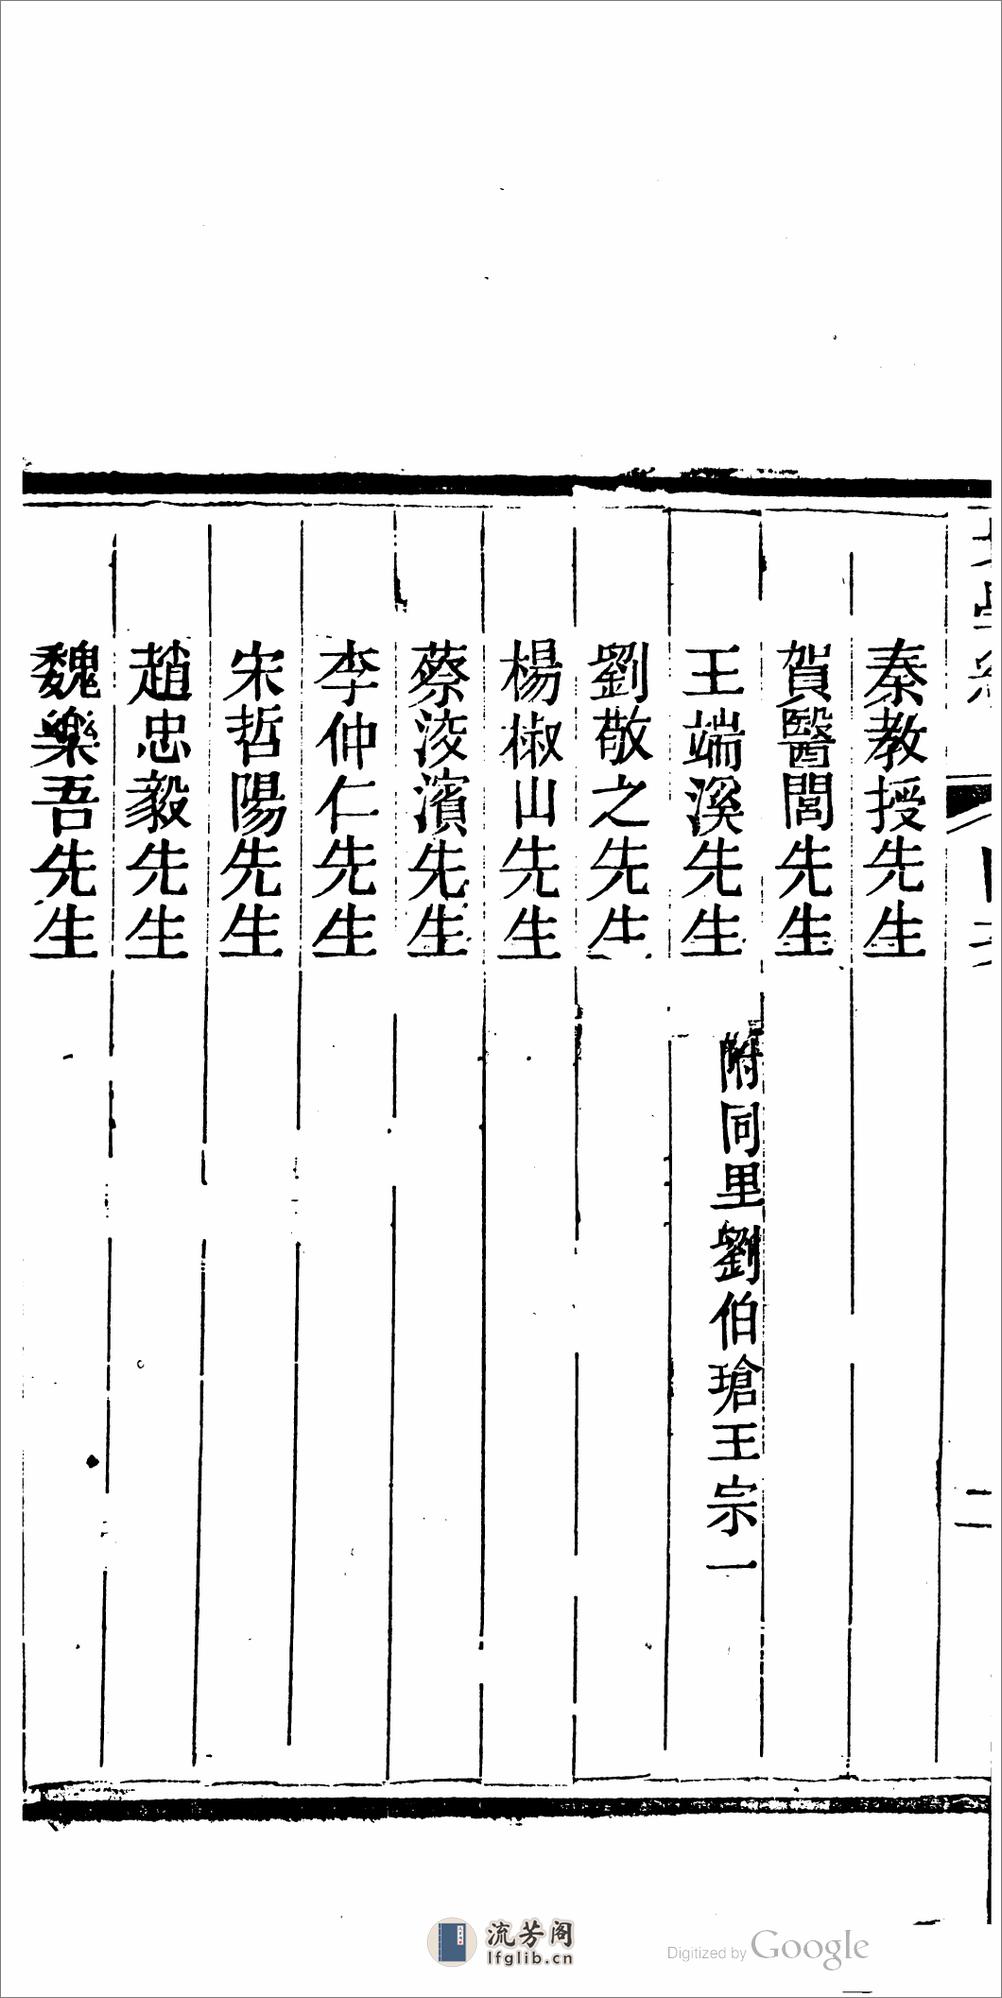 秦教授先生
賀醫閭先生
王端溪先生 附同里劉伯瑲王宗一
劉敬之先生
楊椒山先生
蔡浚濱先生
李仲仁先生
宋哲陽先生
趙忠毅先生
魏樂吾先生
二
流芳阁
lfglib.cn
Digitized by Google